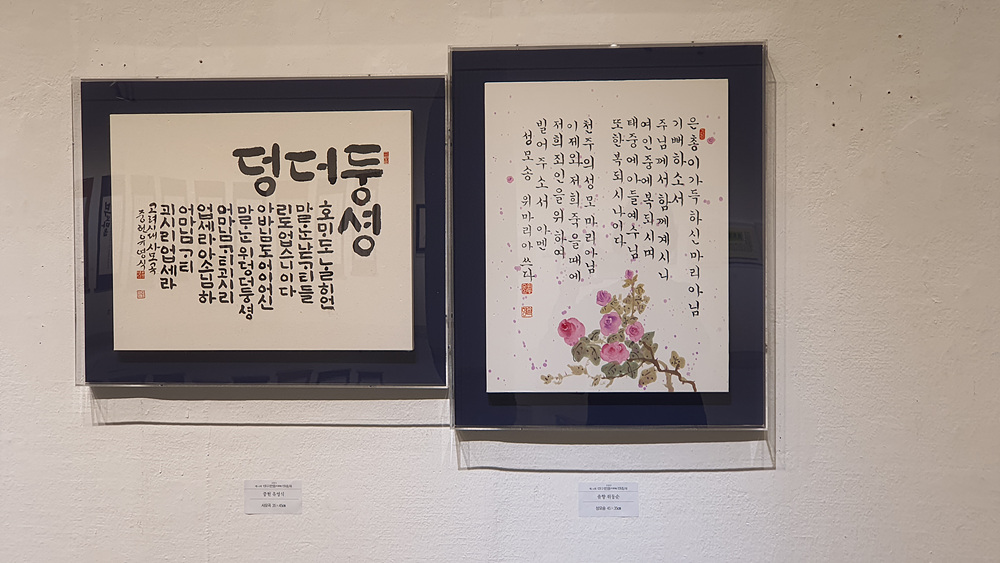 덩더둥셩
호ᄆᆡ도ᄂᆞᆯ히언
마ᄅᆞᄂᆞᆫ낟ᄀᆞ티들
리도업스니이다
아바님도어이어신
마ᄅᆞᄂᆞᆫ위덩더둥셩
어마님ᄀᆞ티괴시리
업세라아소님하
어마님ᄀᆞ티
괴시리업세라
고려시대 사모곡
유영식
은총이가득하신마리아님
기뻐하소서
주님께서함께계시니
여인중에복되시며
태중에아들예수님
또한복되시나이다
천주의성모마리아님
이제와저희죽을때에
저희죄인을위하여
빌어주소서 아멘
성모송 위마리아 쓰다
유영식
사모곡
성모송